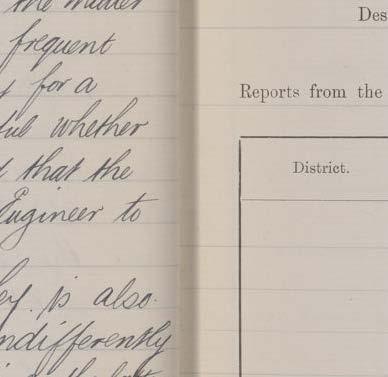 the matter
frequent
for a
whether
that the
Engineer to
is also
indifferently
Des
Reports from the
District.